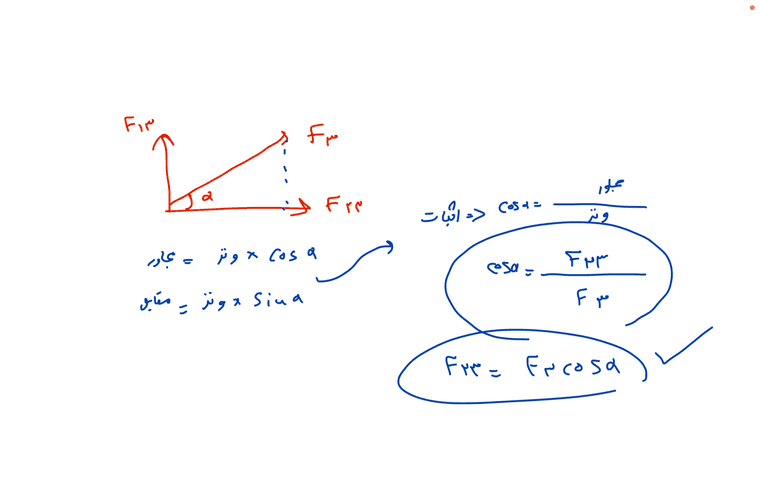 F۱۳
F۳
α
F۲۳
مجاور = وتر × cos α
مقابل = وتر × sin α
اثبات => cos α = مجاور / وتر
cos α = F۲۳ / F۳
F۲۳ = F۳ cos α